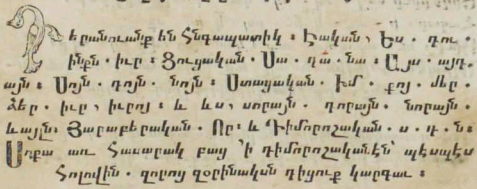 Դերանուանք են Հնգապատիկ ։ Էական , Ես . դու .
ինքն . իւր ։ Ցուցական . Սա . դա . նա ։ Այս . այդ .
այն ։ Սոյն . դոյն . նոյն ։ Ստացական . Իմ . քոյ . մեր .
ձեր . իւր , իւրոյ ։ և ևս , սորայն . դորայն . նորայն .
ևայլն ։ Յարաբերական . Որ ։ և Դիմորոշական . ս . դ . ն ։
Սոքա առ Հասարակ բաց ՚ի դիմորոշականէն՝ պէսպէս
Հոլովին . զորոց զօրինակն դիցուք կարգաւ ։